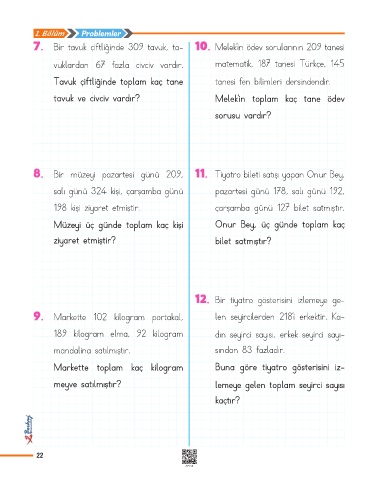 1. Bölüm Problemler
7. Bir tavuk çiftliğinde 309 tavuk, ta-
vuklardan 67 fazla civciv vardır.
Tavuk çiftliğinde toplam kaç tane
tavuk ve civciv vardır?
8. Bir müzeyi pazartesi günü 209,
salı günü 324 kişi, çarşamba günü
198 kişi ziyaret etmiştir.
Müzeyi üç günde toplam kaç kişi
ziyaret etmiştir?
9. Markette 102 kilogram portakal,
189 kilogram elma, 92 kilogram
mandalina satılmıştır.
Markette toplam kaç kilogram
meyve satılmıştır?
10. Melek'in ödev sorularının 209 tanesi
matematik, 187 tanesi Türkçe, 145
tanesi fen bilimleri dersindendir.
Melek'in toplam kaç tane ödev
sorusu vardır?
11. Tiyatro bileti satışı yapan Onur Bey,
pazartesi günü 178, salı günü 192,
çarşamba günü 127 bilet satmıştır.
Onur Bey, üç günde toplam kaç
bilet satmıştır?
12. Bir tiyatro gösterisini izlemeye ge-
len seyircilerden 218'i erkektir. Ka-
dın seyirci sayısı, erkek seyirci sayı-
sından 83 fazladır.
Buna göre tiyatro gösterisini iz-
lemeye gelen toplam seyirci sayısı
kaçtır?
22